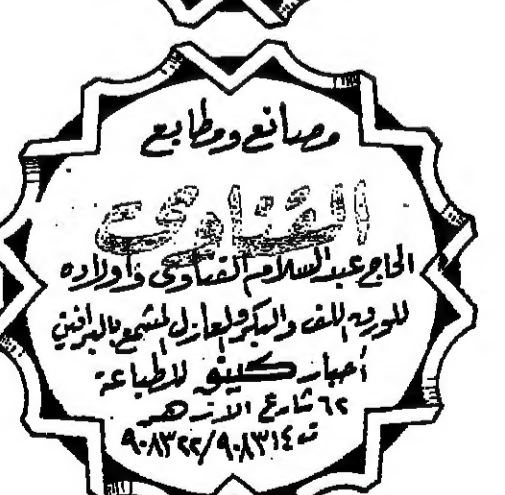 مصانع ومطابع
القناوى
الحاج عبد السلام القناوى وأولاده
للورق اللف والبكر والعازل المشمع بالبرافين
أحبار كلينو للطباعة
٦٢ شارع الازهر
ت ٩٠٨٣١٤ / ٩٠٨٣٢٢